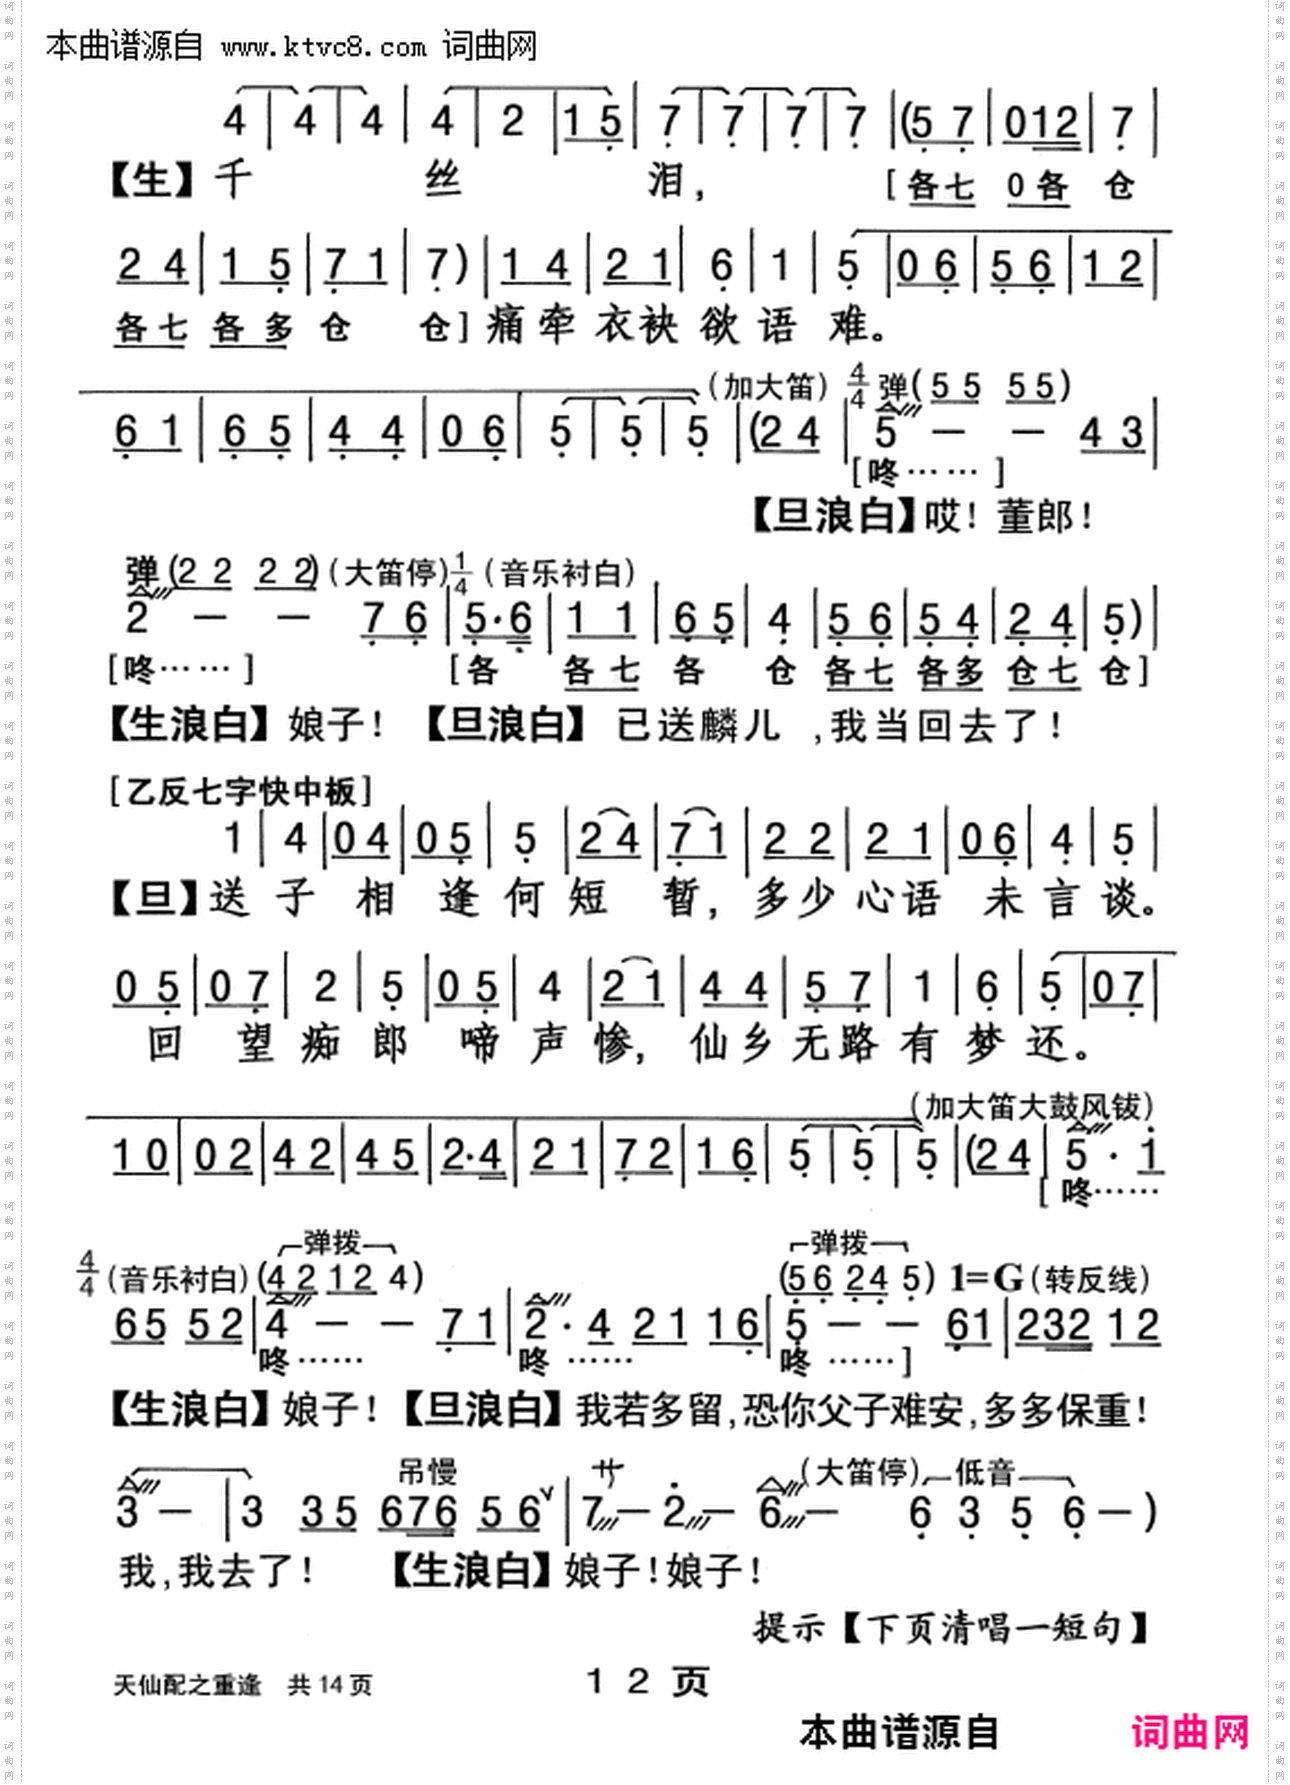 本曲谱源自 www.ktvc8.com 词曲网
4 | 4 | 4 | 4 | 2 | 1 5 | 7 | 7 | 7 | 7 | (5 7 | 0 1 2 | 7 |
【生】千 丝 泪, [各七 0各 仓
2 4 | 1 5 | 7 1 | 7) | 1 4 | 2 1 | 6 | 1 | 5 | 0 6 | 5 6 | 1 2 |
各七 各多 仓 仓] 痛牵 衣袂 欲 语 难。
(加大笛) 4/4 弹(5 5 5 5)
6 1 | 6 5 | 4 4 | 0 6 | 5 | 5 | 5 | (2 4 | 5 — — 4 3 |
[咚…… ]
【旦浪白】哎! 董郎!
弹(2 2 2 2) (大笛停) 1/4 (音乐衬白)
2 — — 7 6 | 5·6 | 1 1 | 6 5 | 4 | 5 6 | 5 4 | 2 4 | 5) |
[咚…… ] [各 各七 各 仓 各七 各多 仓七 仓]
【生浪白】娘子! 【旦浪白】 已送麟儿 ,我当回去了!
[乙反七字快中板]
1 | 4 | 0 4 | 0 5 | 5 | 2 4 | 7 1 | 2 2 | 2 1 | 0 6 | 4 | 5 |
【旦】送 子 相 逢 何 短 暂, 多少 心语 未 言 谈。
0 5 | 0 7 | 2 | 5 | 0 5 | 4 | 2 1 | 4 4 | 5 7 | 1 | 6 | 5 | 0 7 |
回 望 痴 郎 啼 声 惨, 仙乡 无路 有 梦 还。
(加大笛大鼓风钹)
1 0 | 0 2 | 4 2 | 4 5 | 2·4 | 2 1 | 7 2 | 1 6 | 5 | 5 | 5 | (2 4 | 5 · 1
[ 咚……
弹拨 弹拨
4/4 (音乐衬白) (4 2 1 2 4) (5 6 2 4 5) 1=G (转反线)
6 5 5 2 | 4 — — 7 1 | 2 · 4 2 1 1 6 | 5 — — 6 1 | 2 3 2 1 2
咚…… 咚 …… 咚 ……]
【生浪白】娘子! 【旦浪白】我若多留,恐你父子难安,多多保重!
吊慢 サ (大笛停) 低音
3 — | 3 3 5 6 7 6 5 6 ∨ | 7 — 2 — 6 — 6 3 5 6 — )
我,我去了! 【生浪白】娘子!娘子!
提示【下页清唱一短句】
天仙配之重逢 共14页 12页
本曲谱源自 词曲网